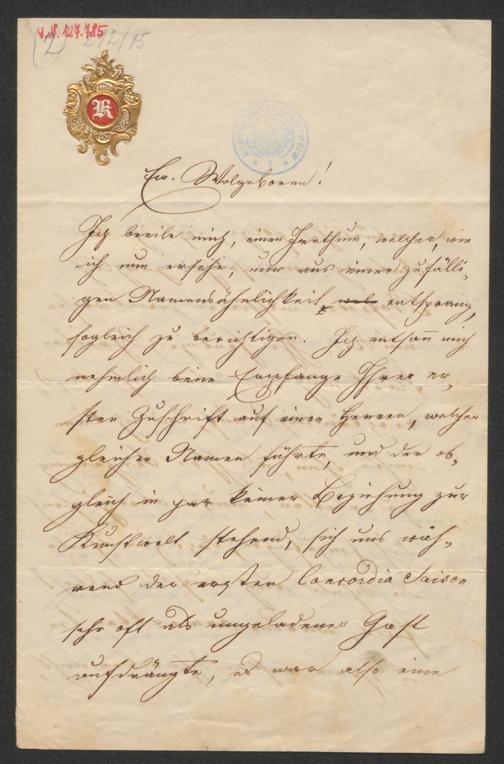 I.N. 127.785
(2) 212/15
K
Ew. Wolgeboren!
Ich beeile mich, einen Irrthum, welcher, wie
ich nun ersehe, nur aus einer zufälli-
gen Namensähnlichkeit entsprang,
sogleich zu berichtigen. Ich entsann mich
nehmlich beim Empfange Ihrer er-
sten Zuschrift auf einen Herren, welcher
gleichen Namen führte, und der ob-
gleich in gar keiner Beziehung zur
Kunstwelt stehend, sich uns wäh-
rend der ersten Concordia Saison
sehr oft als ungeladener Gast
aufdrängte, es war also eine